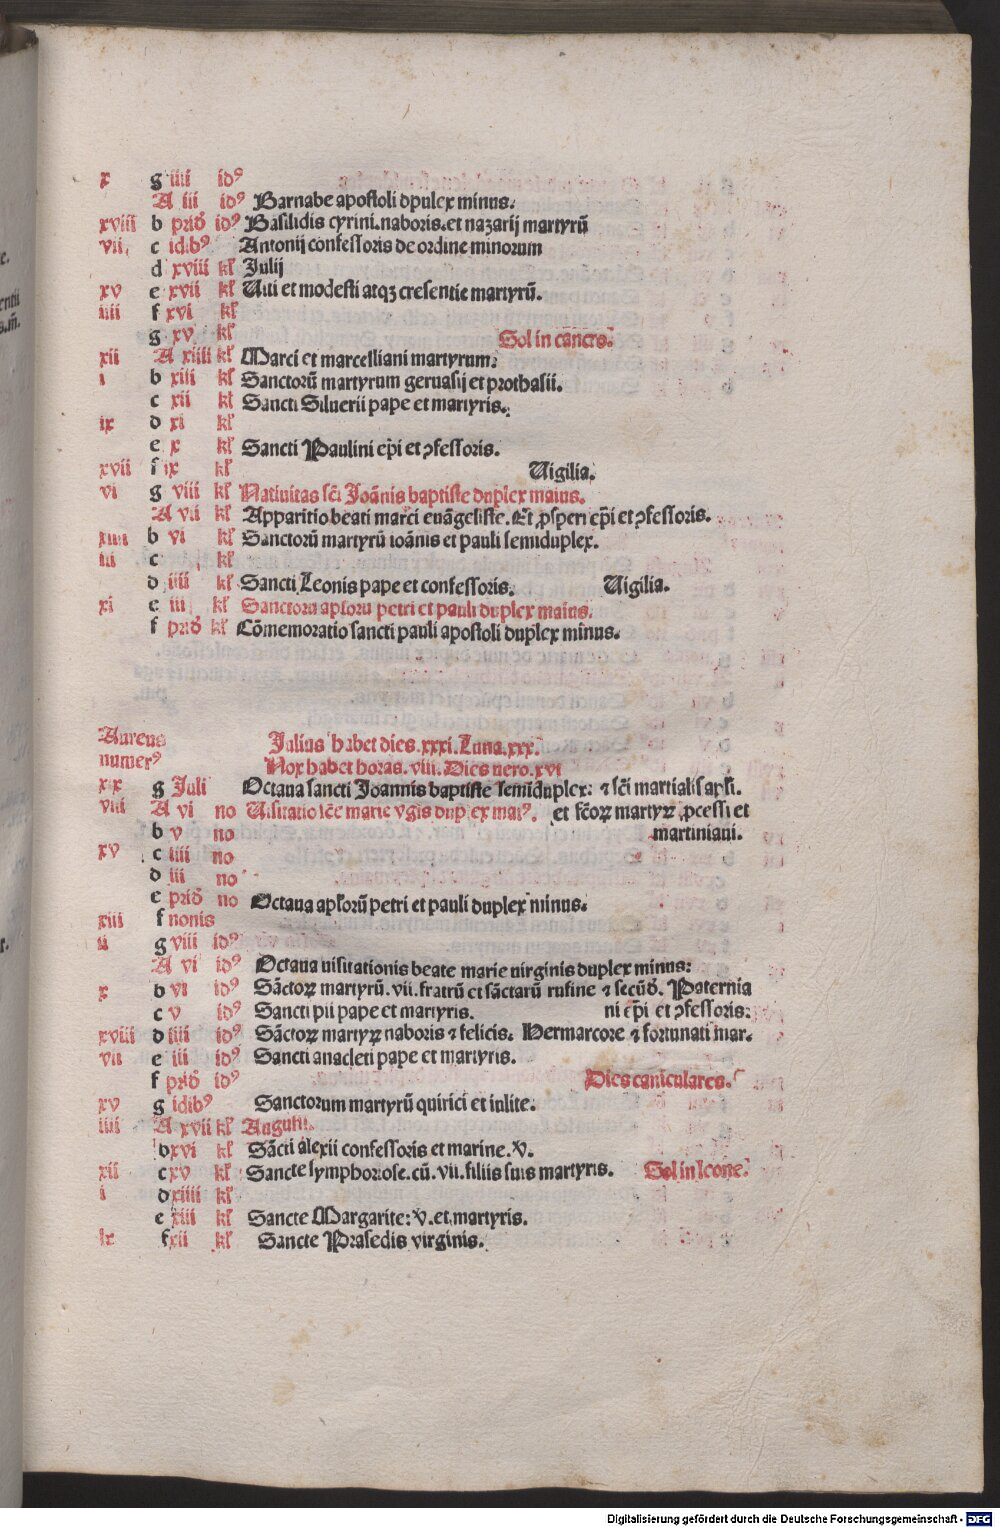 x g iiii idꝰ
A iii idꝰ Barnabe apostoli dpulex minus.
xviii b prid̄ idꝰ Basilidis cyrini.naboris.et nazarij martyrū
vii c idibꝰ Antonij confessoris de ordine minorum
d xviii kl̓ Julij
xv e xvii kl̓ Uiti et modesti atqꝫ cresentie martyrū.
iiii f xvi kl̓
g xv kl̓ Sol in cancrs.
xii A xiiii kl̓ Marci et marcelliani martyrum.
i b xiii kl̓ Sanctorū martyrum geruasij et prothasii.
c xii kl̓ Sancti Siluerii pape et martyris.
ix d xi kl̓
e x kl̓ Sancti Paulini ep̄i et ꝯfessoris.
xvii f ix kl̓ Uigilia.
vi g viii kl̓ Natiuitas sc̄i Joānis baptiste duplex maius.
A vii kl̓ Apparitio beati marci euāgeliste. Et ꝓsperi ep̄i et ꝯfessoris.
xiiii b vi kl̓ Sanctorū martyrū ioānis et pauli semiduplex.
iii c kl̓
d iiii kl̓ Sancti Leonis pape et confessoris. Uigilia.
xi e iii kl̓ Sanctoru apl̓oru petri et pauli duplex maius.
f prid̄ kl̓ Cōmemoratio sancti pauli apostoli duplex minus.
Aureus Julius habet dies.xxxi.Luna.xxx.
numerꝰ Nox habet horas.viii.Dies uero.xvi
xix g Juli Octaua sancti Joannis baptiste semiduplex: ⁊ sc̄i martialis apl̓i.
viii A vi no Uisitatio sc̄e marie v̄gis duplex maiꝰ. et sc̄oꝝ martyꝝ ꝓcessi et
b v no martiniani.
xv c iiii no
d iii no
e prid̄ no Octaua apl̓orū petri et pauli duplex minus.
xiii f nonis
ii g viii idꝰ
A vi idꝰ Octaua uisitationis beate marie uirginis duplex minus:
x b vi idꝰ Sāctoꝝ martyrū.vii.fratrū et sāctarū rufine ⁊ secūd̄. Paternia
c v idꝰ Sancti pii pape et martyris. ni ep̄i et ꝯfessoris:
xviii d iiii idꝰ Sāctoꝝ martyꝝ naboris ⁊ felicis. Hermarcore ⁊ fortunati mar.
vii e iii idꝰ Sancti anacleti pape et martyris.
f prid̄ idꝰ Dies caniculares.
xv g idibꝰ Sanctorum martyrū quirici et iulite.
iiii A xvii kl̓ Augusti.
b xvi kl̓ Sācti alexii confessoris et marine.v̄.
xii c xv kl̓ Sancte symphorose.cū.vii.filiis suis martyris. Sol in leone.
i d xiiii kl̓
e xiii kl̓ Sancte Margarite: v̄.et martyris.
ix f xii kl̓ Sancte Prasedis virginis.
Digitalisierung gefördert durch die Deutsche Forschungsgemeinschaft - DFG